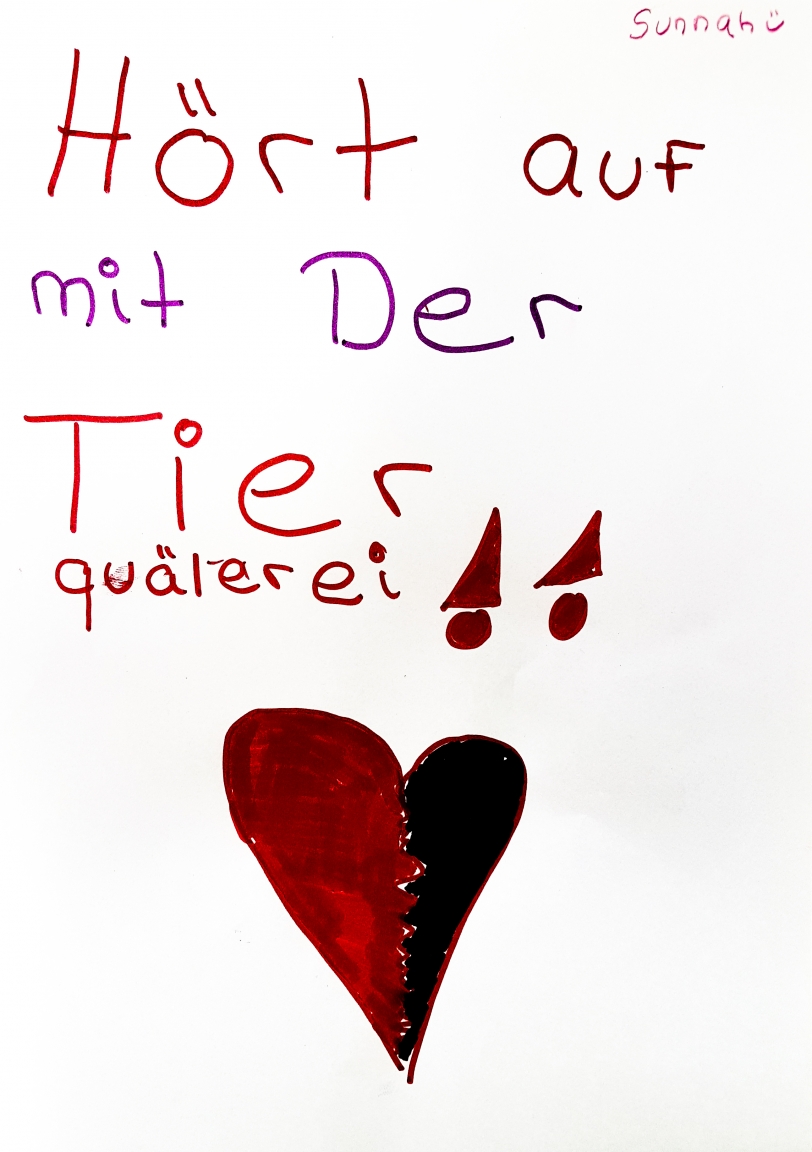 Sunnah
Hört auf
mit Der
Tier
quälerei !!